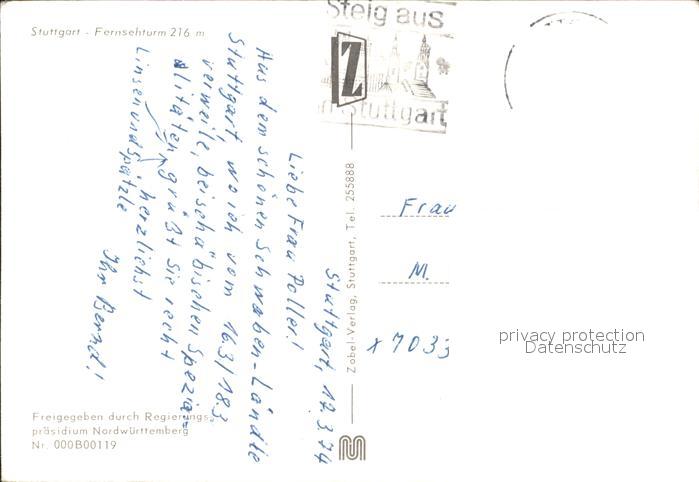 Stuttgart - Fernsehturm 216 m
Steig aus
in Stuttgart
Stuttgart, 17.3.74
Liebe Frau Poller!
Aus dem schönen Schwaben-Ländle
Stuttgart, wo ich vom 16.3/18.3
verweile, bei schwäbischen Spezia-
litäten grüßt Sie recht
herzlichst
Linsen und Spätzle
Ihr Bernd!
Zobel-Verlag, Stuttgart, Tel. 255888
Frau
M.
x 7033
privacy protection
Datenschutz
Freigegeben durch Regierungs-
präsidium Nordwürttemberg
Nr. 000B00119